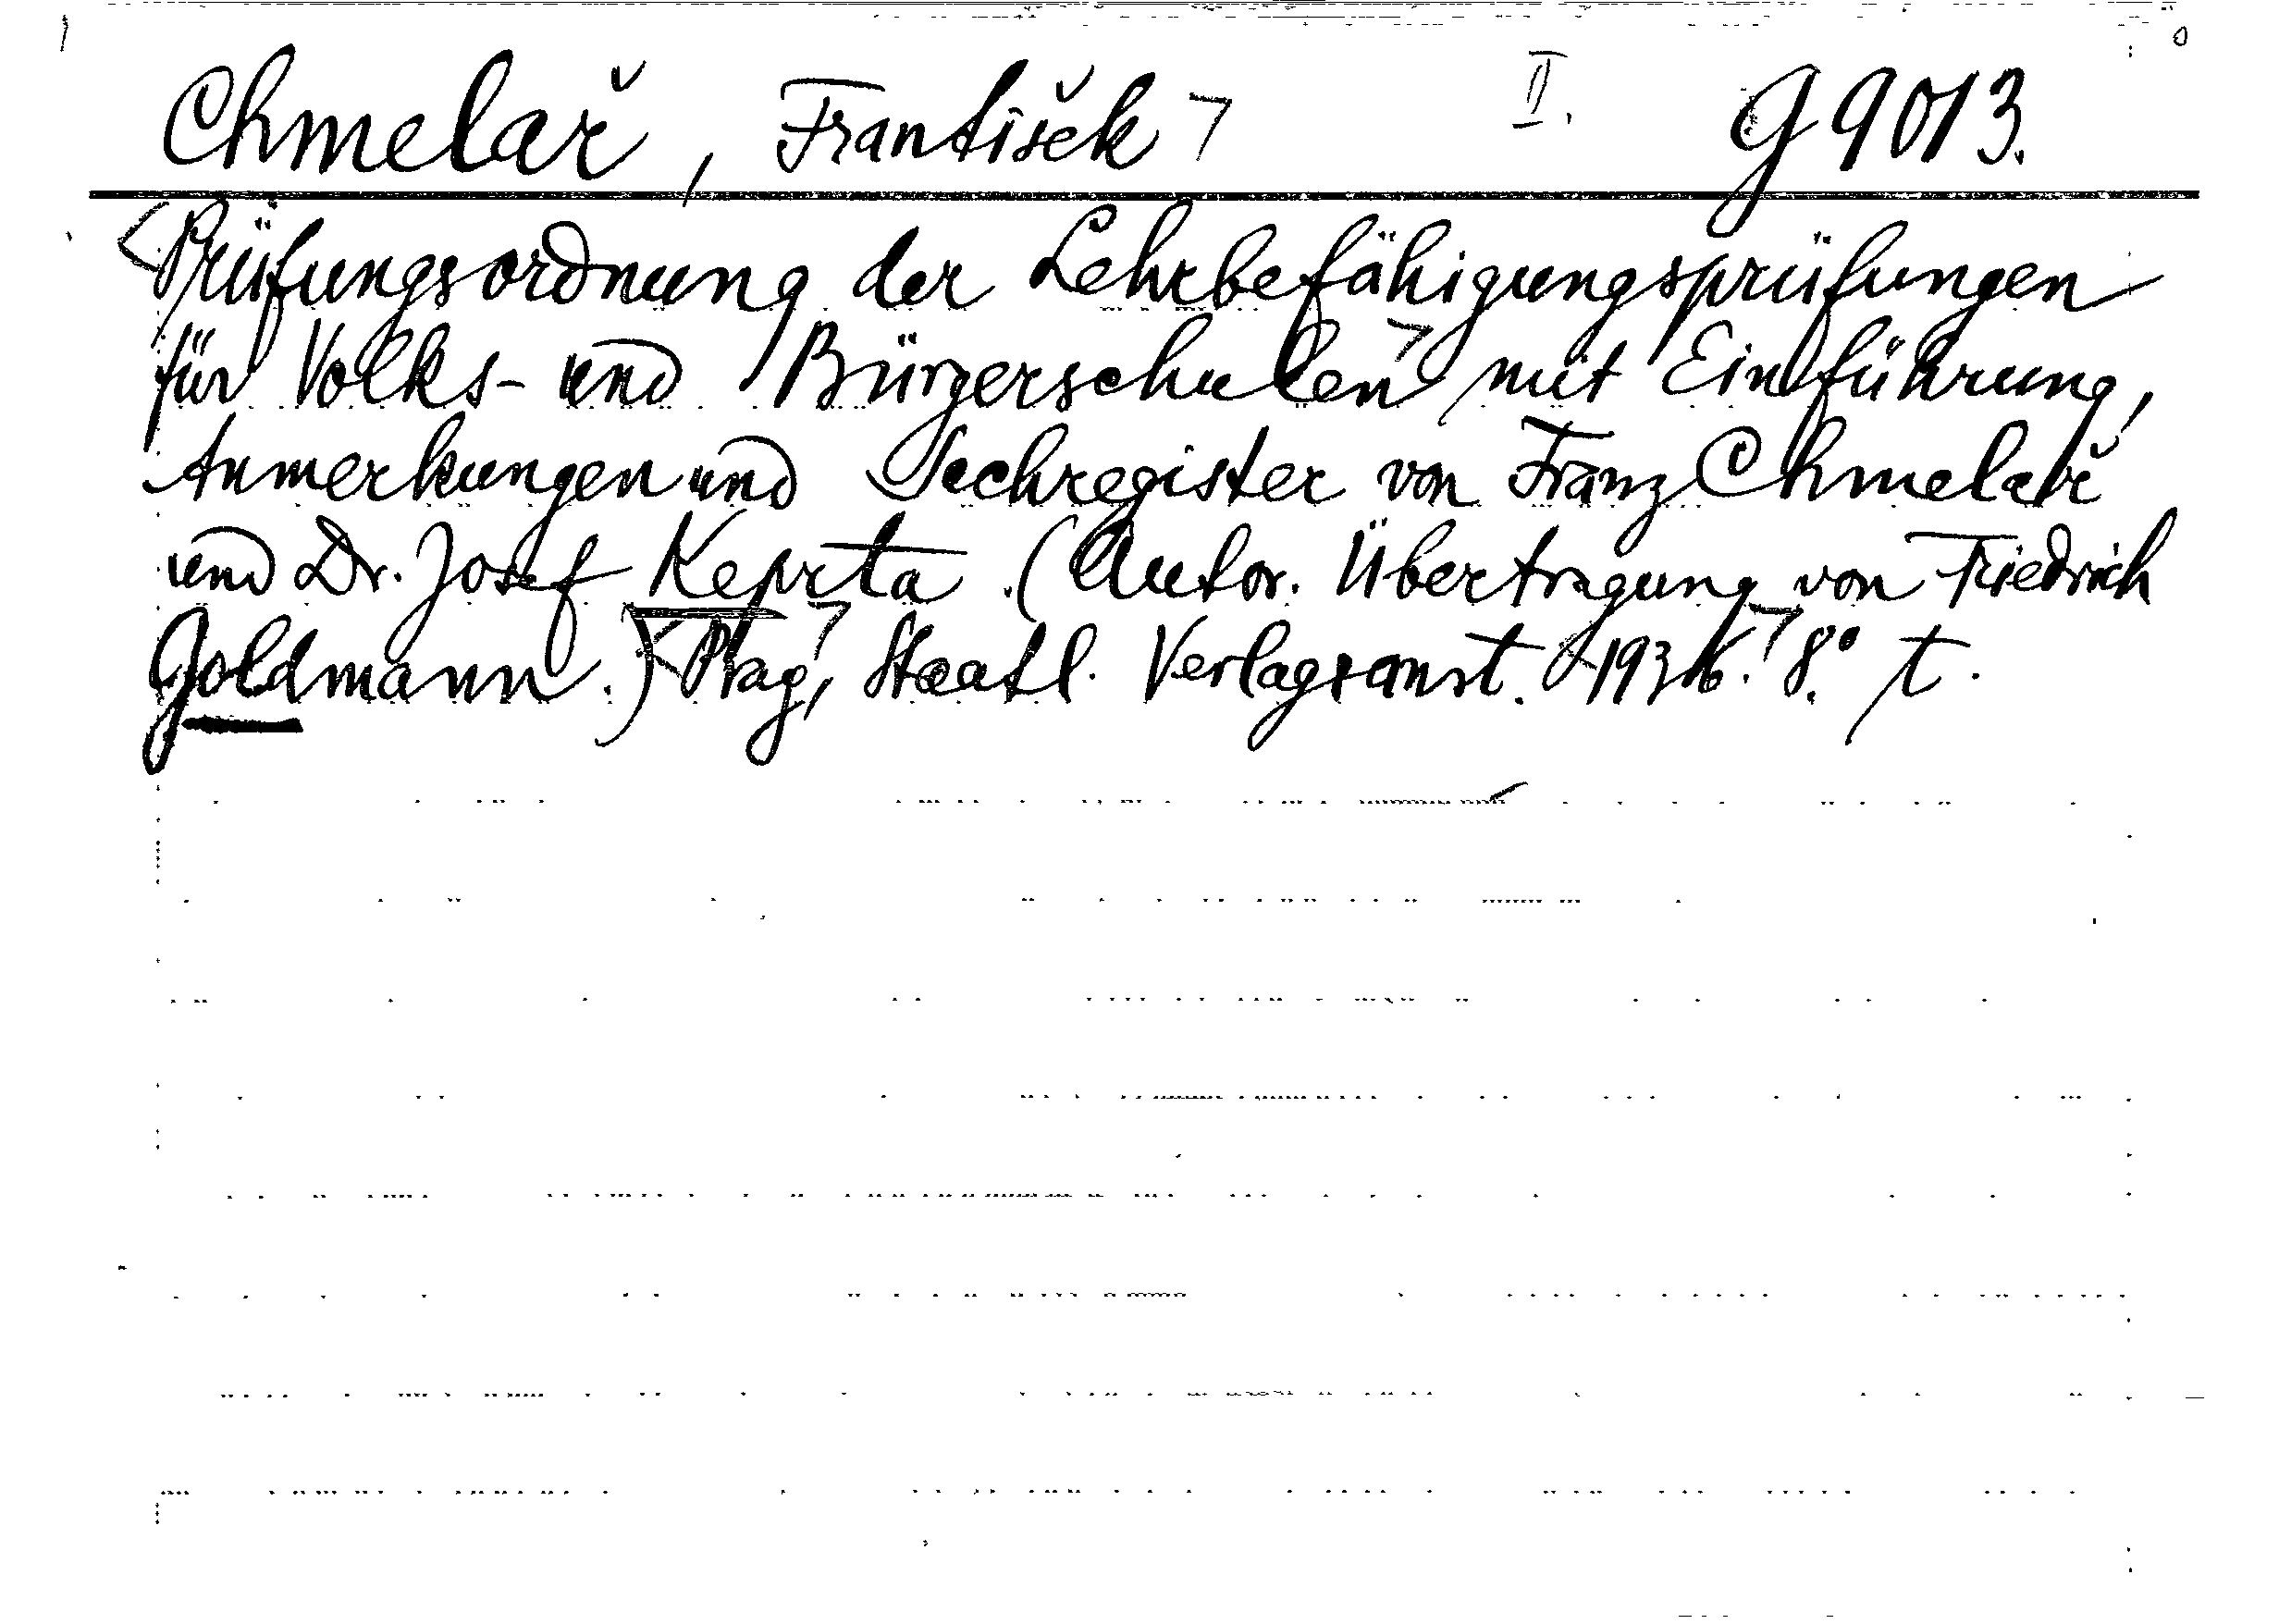 Chmelař, František II. G 9013.
Prüfungsordnung der Lehrbefähigungsprüfungen
für Volks- und Bürgerschulen mit Einführung,
Anmerkungen und Sachregister von Franz Chmelař
und Dr. Josef Keprta. (Autor. Übertragung von Friedrich
Goldmann.) Prag, Staatl. Verlagsanst. 1936. 8° t.